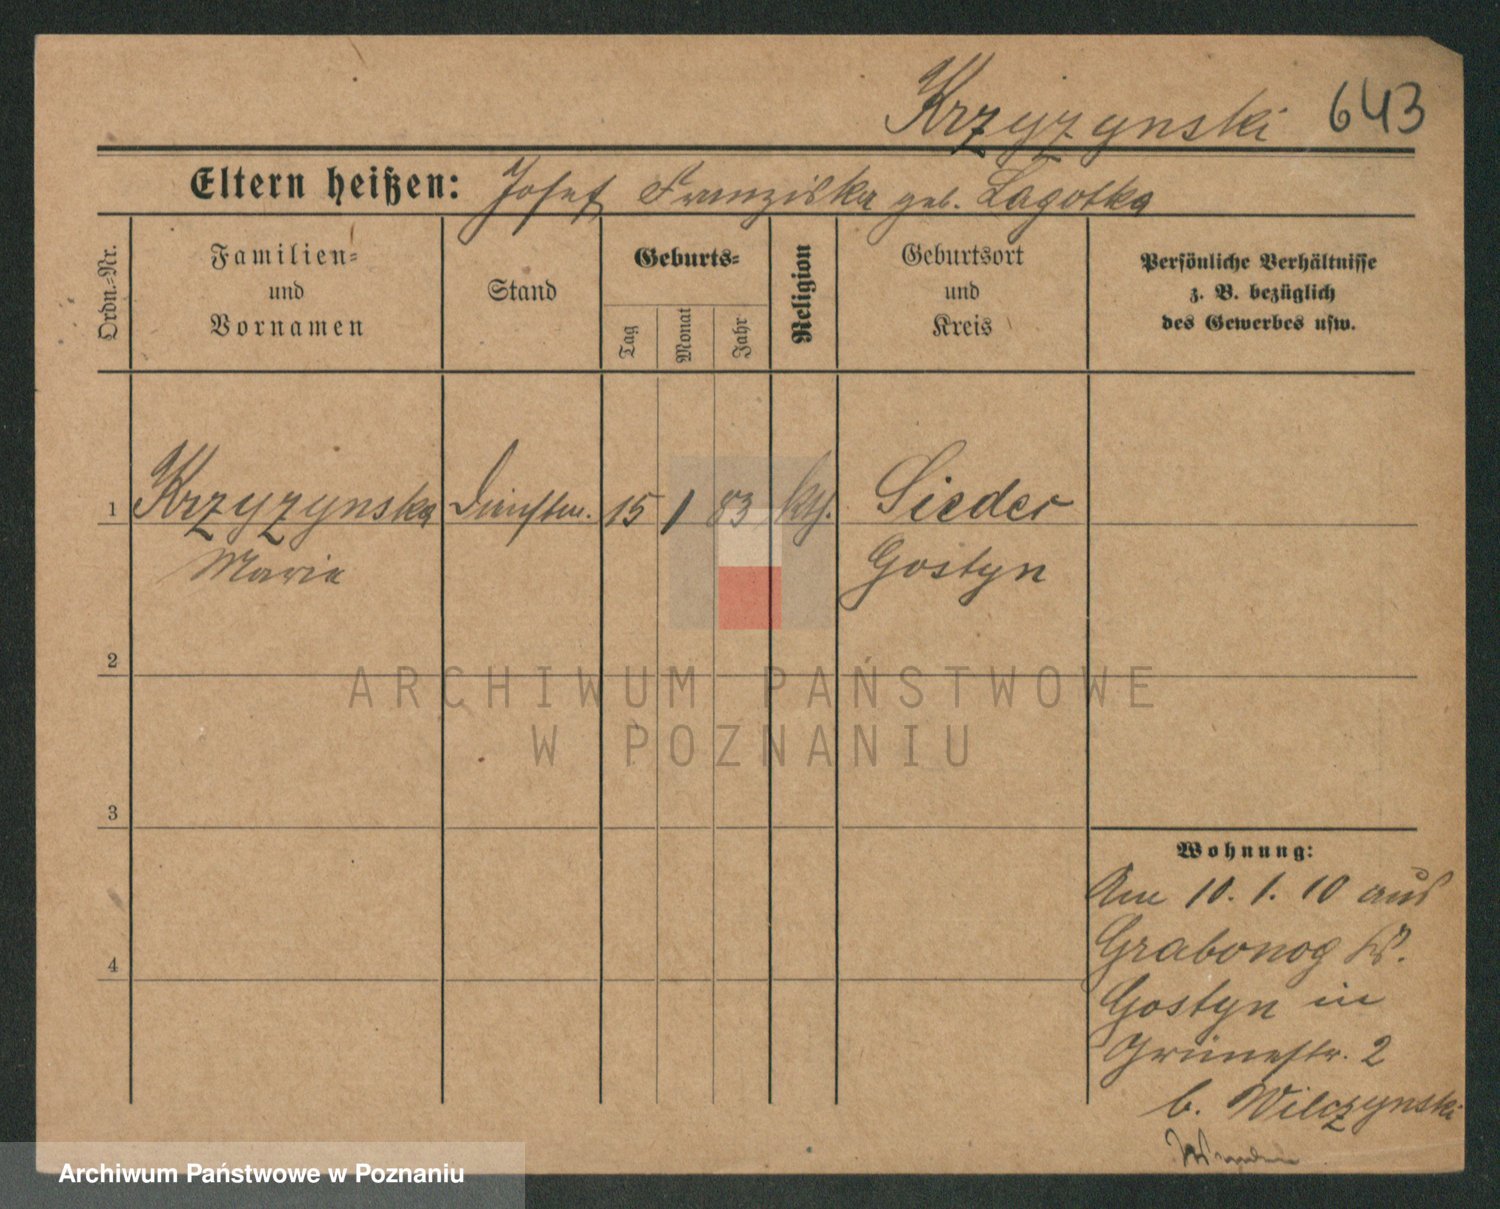 Krzyzynski 643
Eltern heißen: Josef Franziska geb. Lagotka
Ordn.-Nr.
Familien-
und
Vornamen
Stand
Geburts-
Tag
Monat
Jahr
Religion
Geburtsort
und
Kreis
Persönliche Verhältnisse
z. B. bezüglich
des Gewerbes usw.
1 Krzyzynska Dienstm. 15 1 83 kth. Sieder
Marie Gostyn
2
3
4
Wohnung:
Am 10. 1. 10 aus
Grabonog Kr.
Gostyn in
Grünestr. 2
b. Wilczynski
ARCHIWUM PAŃSTWOWE
W POZNANIU
Archiwum Państwowe w Poznaniu